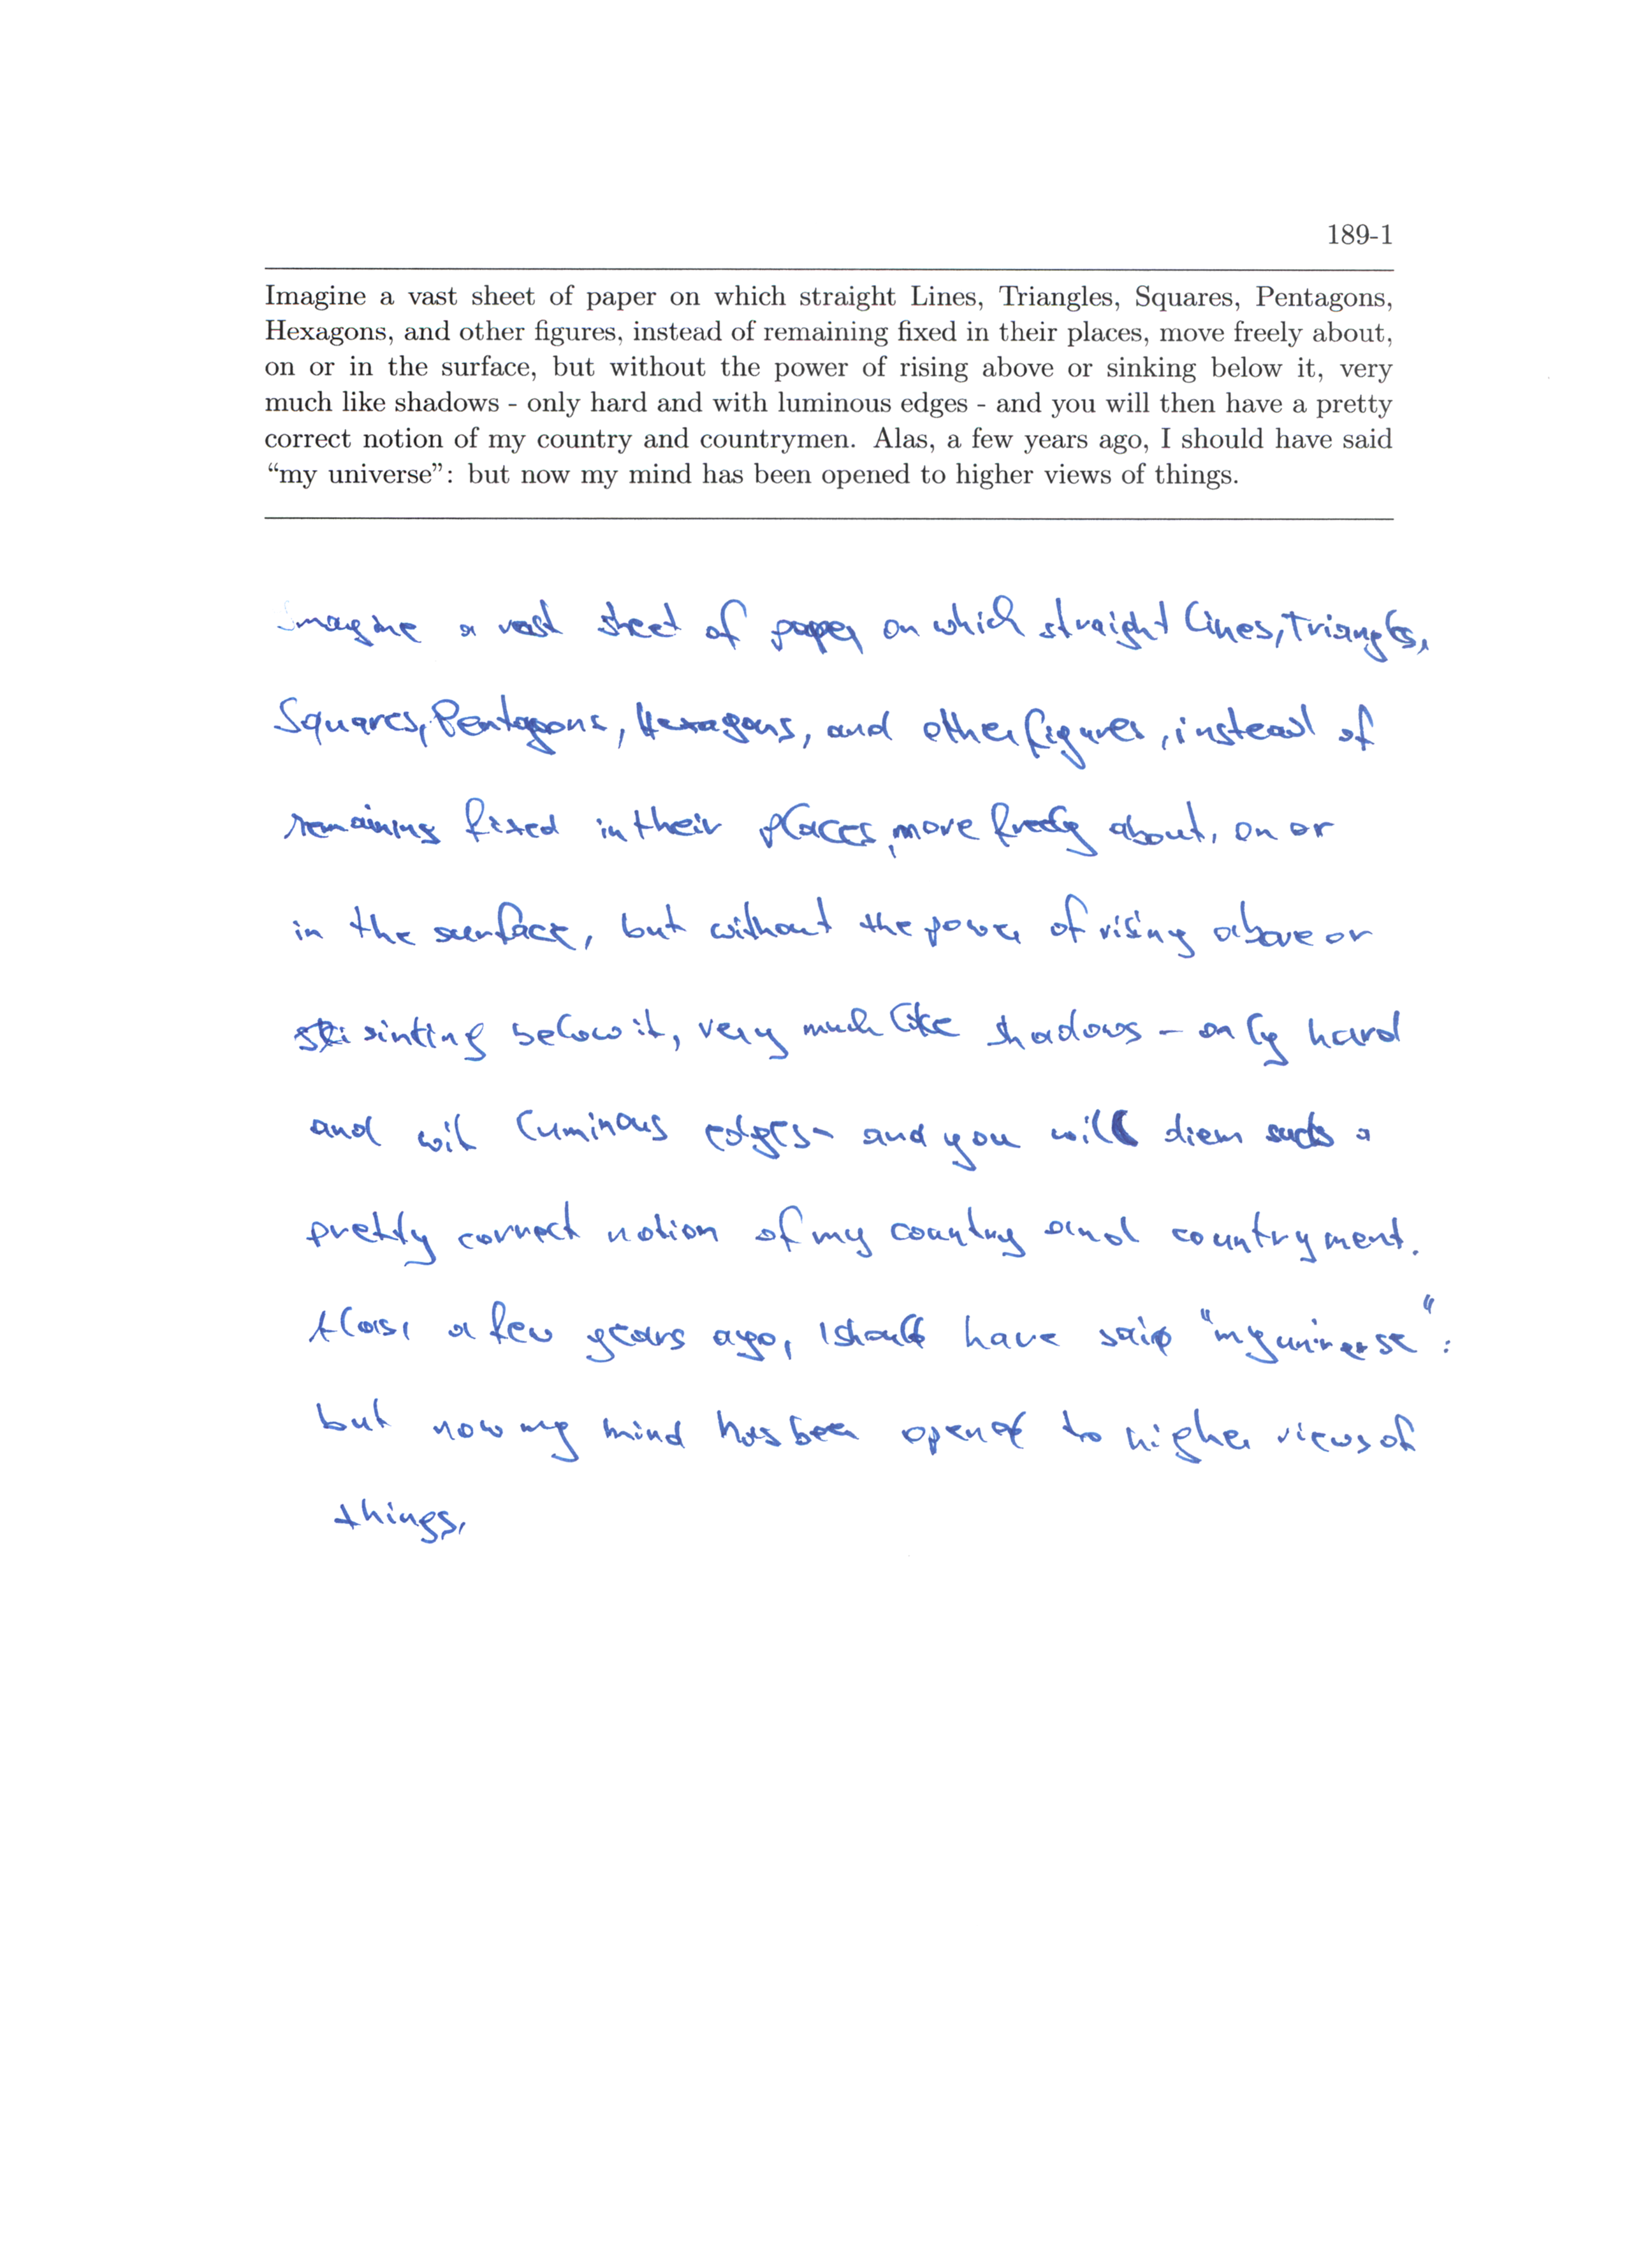 189-1
Imagine a vast sheet of paper on which straight Lines, Triangles, Squares, Pentagons,
Hexagons, and other figures, instead of remaining fixed in their places, move freely about,
on or in the surface, but without the power of rising above or sinking below it, very
much like shadows - only hard and with luminous edges - and you will then have a pretty
correct notion of my country and countrymen. Alas, a few years ago, I should have said
“my universe”: but now my mind has been opened to higher views of things.
Imagine a vast sheet of paper on which straight Lines, Triangles,
Squares, Pentagons, Hexagons, and other figures, instead of
remaining fixed in their places, move freely about, on or
in the surface, but without the power of rising above or
sinking below it, very much like shadows - only hard
and wit luminous edges - and you will diem a
pretty correct notion of my country and countryment.
Alas, a few years ago, I should have said "my universe":
but now my mind has been opened to higher views of
things,